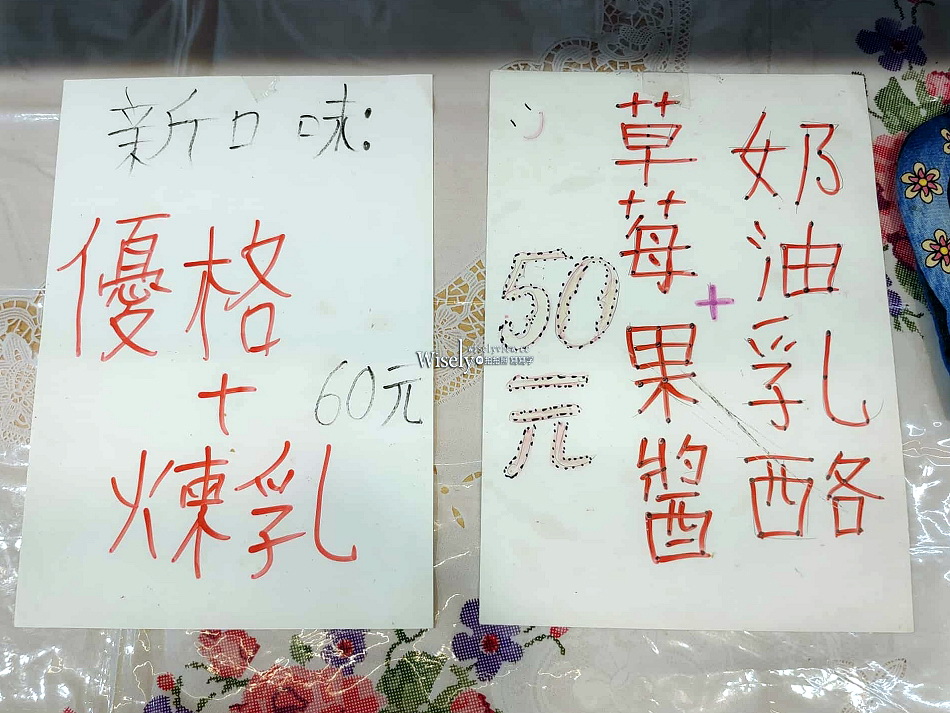 新口味:
優格
+
煉乳
60元
奶油乳酪
+
草莓果醬
50元
Wisely